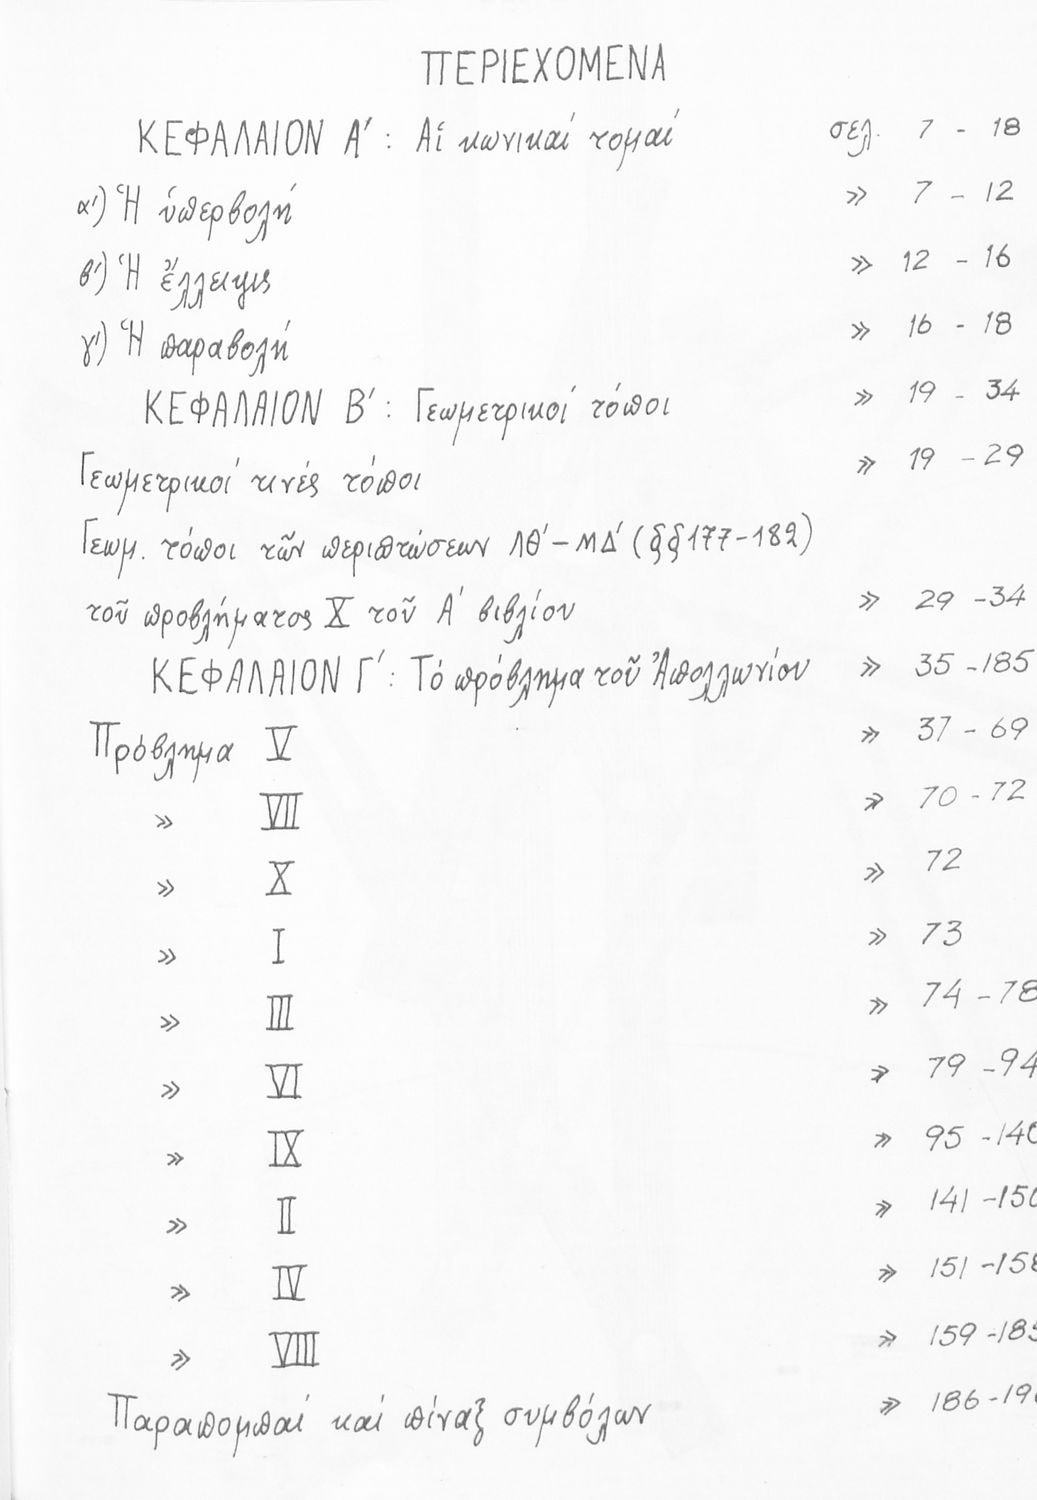 ΠΕΡΙΕΧΟΜΕΝΑ
ΚΕΦΑΛΑΙΟΝ Α΄: Αἱ κωνικαί τομαί σελ. 7 - 18
α΄) Ἡ ὑπερβολή » 7 - 12
β΄) Ἡ ἔλλειψις » 12 - 16
γ΄) Ἡ παραβολή » 16 - 18
ΚΕΦΑΛΑΙΟΝ Β΄: Γεωμετρικοί τόποι » 19 - 34
Γεωμετρικοί τινές τόποι » 19 - 29
Γεωμ. τόποι τῶν περιπτώσεων ΛΘ΄-ΜΔ΄ (§§177-182)
τοῦ προβλήματος X τοῦ Α΄ βιβλίου » 29 - 34
ΚΕΦΑΛΑΙΟΝ Γ΄: Τό πρόβλημα τοῦ Ἀπολλωνίου » 35 - 185
Πρόβλημα V » 37 - 69
» VII » 70 - 72
» X » 72
» I » 73
» III » 74 - 78
» VI » 79 - 94
» IX » 95 - 140
» II » 141 - 150
» IV » 151 - 158
» VIII » 159 - 185
Παραπομπαί καί πίναξ συμβόλων » 186